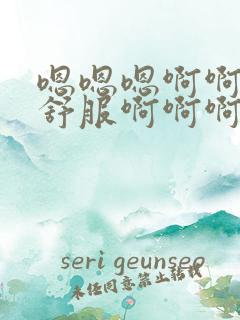 嗯嗯嗯啊啊
舒服啊啊啊
seri geunseo
未经同意禁止转载